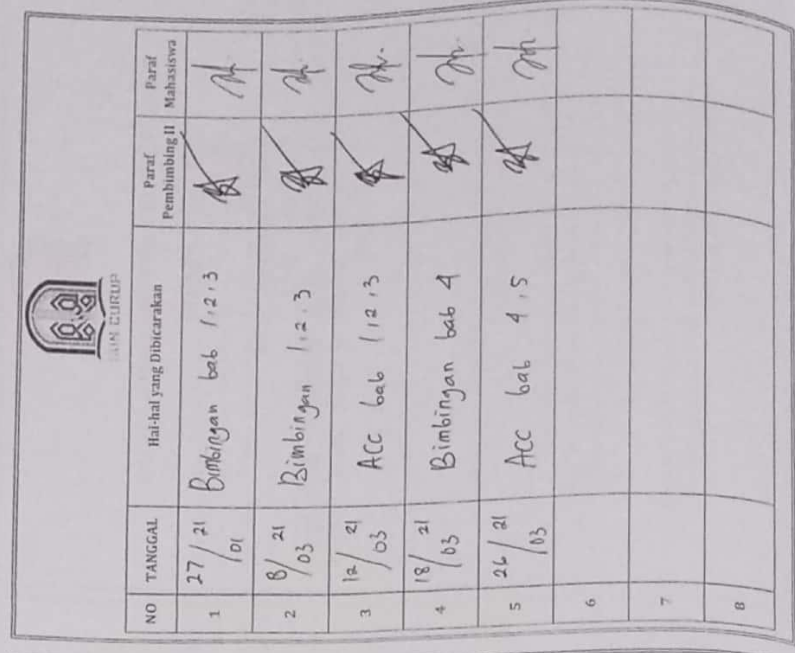 IAIN CURUP
NO TANGGAL Hal-hal yang Dibicarakan Paraf Pembimbing II Paraf Mahasiswa
1 27/01 21 Bimbingan bab 1,2,3
2 8/03 21 Bimbingan 1,2,3
3 12/03 21 ACC bab 1,2,3
4 18/03 21 Bimbingan bab 4
5 26/03 21 ACC bab 4,5
6
7
8